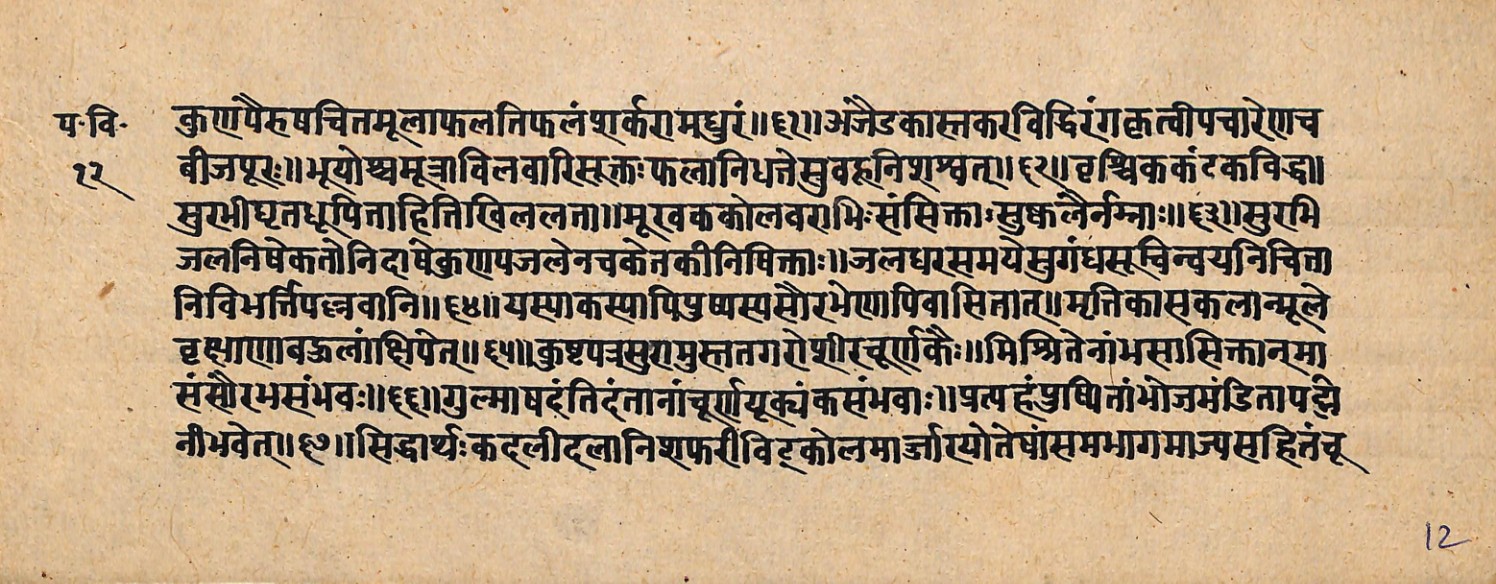 प·वि·
१२
कुणपैरुषचितमूलाफलतिफलंशर्करामधुरं॥६१॥अजैडकास्तकरविद्विरंगकृत्वीपचारेणच
बीजपूरः॥भूयोष्चमूत्राविलवारिसूक्तःफलानिधत्तेसुवहूनिशश्वत्॥६२॥वृश्चिककंटकविद्धा॥
सुरभीघृतधूपिताहित्तिखिललता॥मूरवककोलवराभिःसंसिक्ताःसुष्कलैर्नम्नाः॥६३॥सुरभि
जलनिषेकतोनिदाषेकुणपजलेनचकेतकीनिषिक्ताः॥जलधरसमयेसुगंधसूचिन्वयनिचिता
निविभर्त्तिपल्लवानि॥६४॥यस्याकस्यापिपुष्पस्यसौरभेणापिवासितात्॥मृत्तिकासकलान्मूले
वृक्षाणाबद्धलांक्षिपेत्॥६५॥कुष्टपत्रसुरामुस्ततगरोशीरचूर्णकैः॥मिश्रितेनांभसासिक्तान्मा
संसौरभसंभवः॥६६॥गुल्माषदंतिदंतानांचूर्णयूक्यंकसंभवाः॥प्रत्यहंपुष्पितांभोजमंडितापद्मि
नीभवेत्॥६७॥सिद्धार्थःकदलीदलानिशफरीविट्कोलमार्ज्जारयोतेषांसमभागमाज्यसहितंचू
12